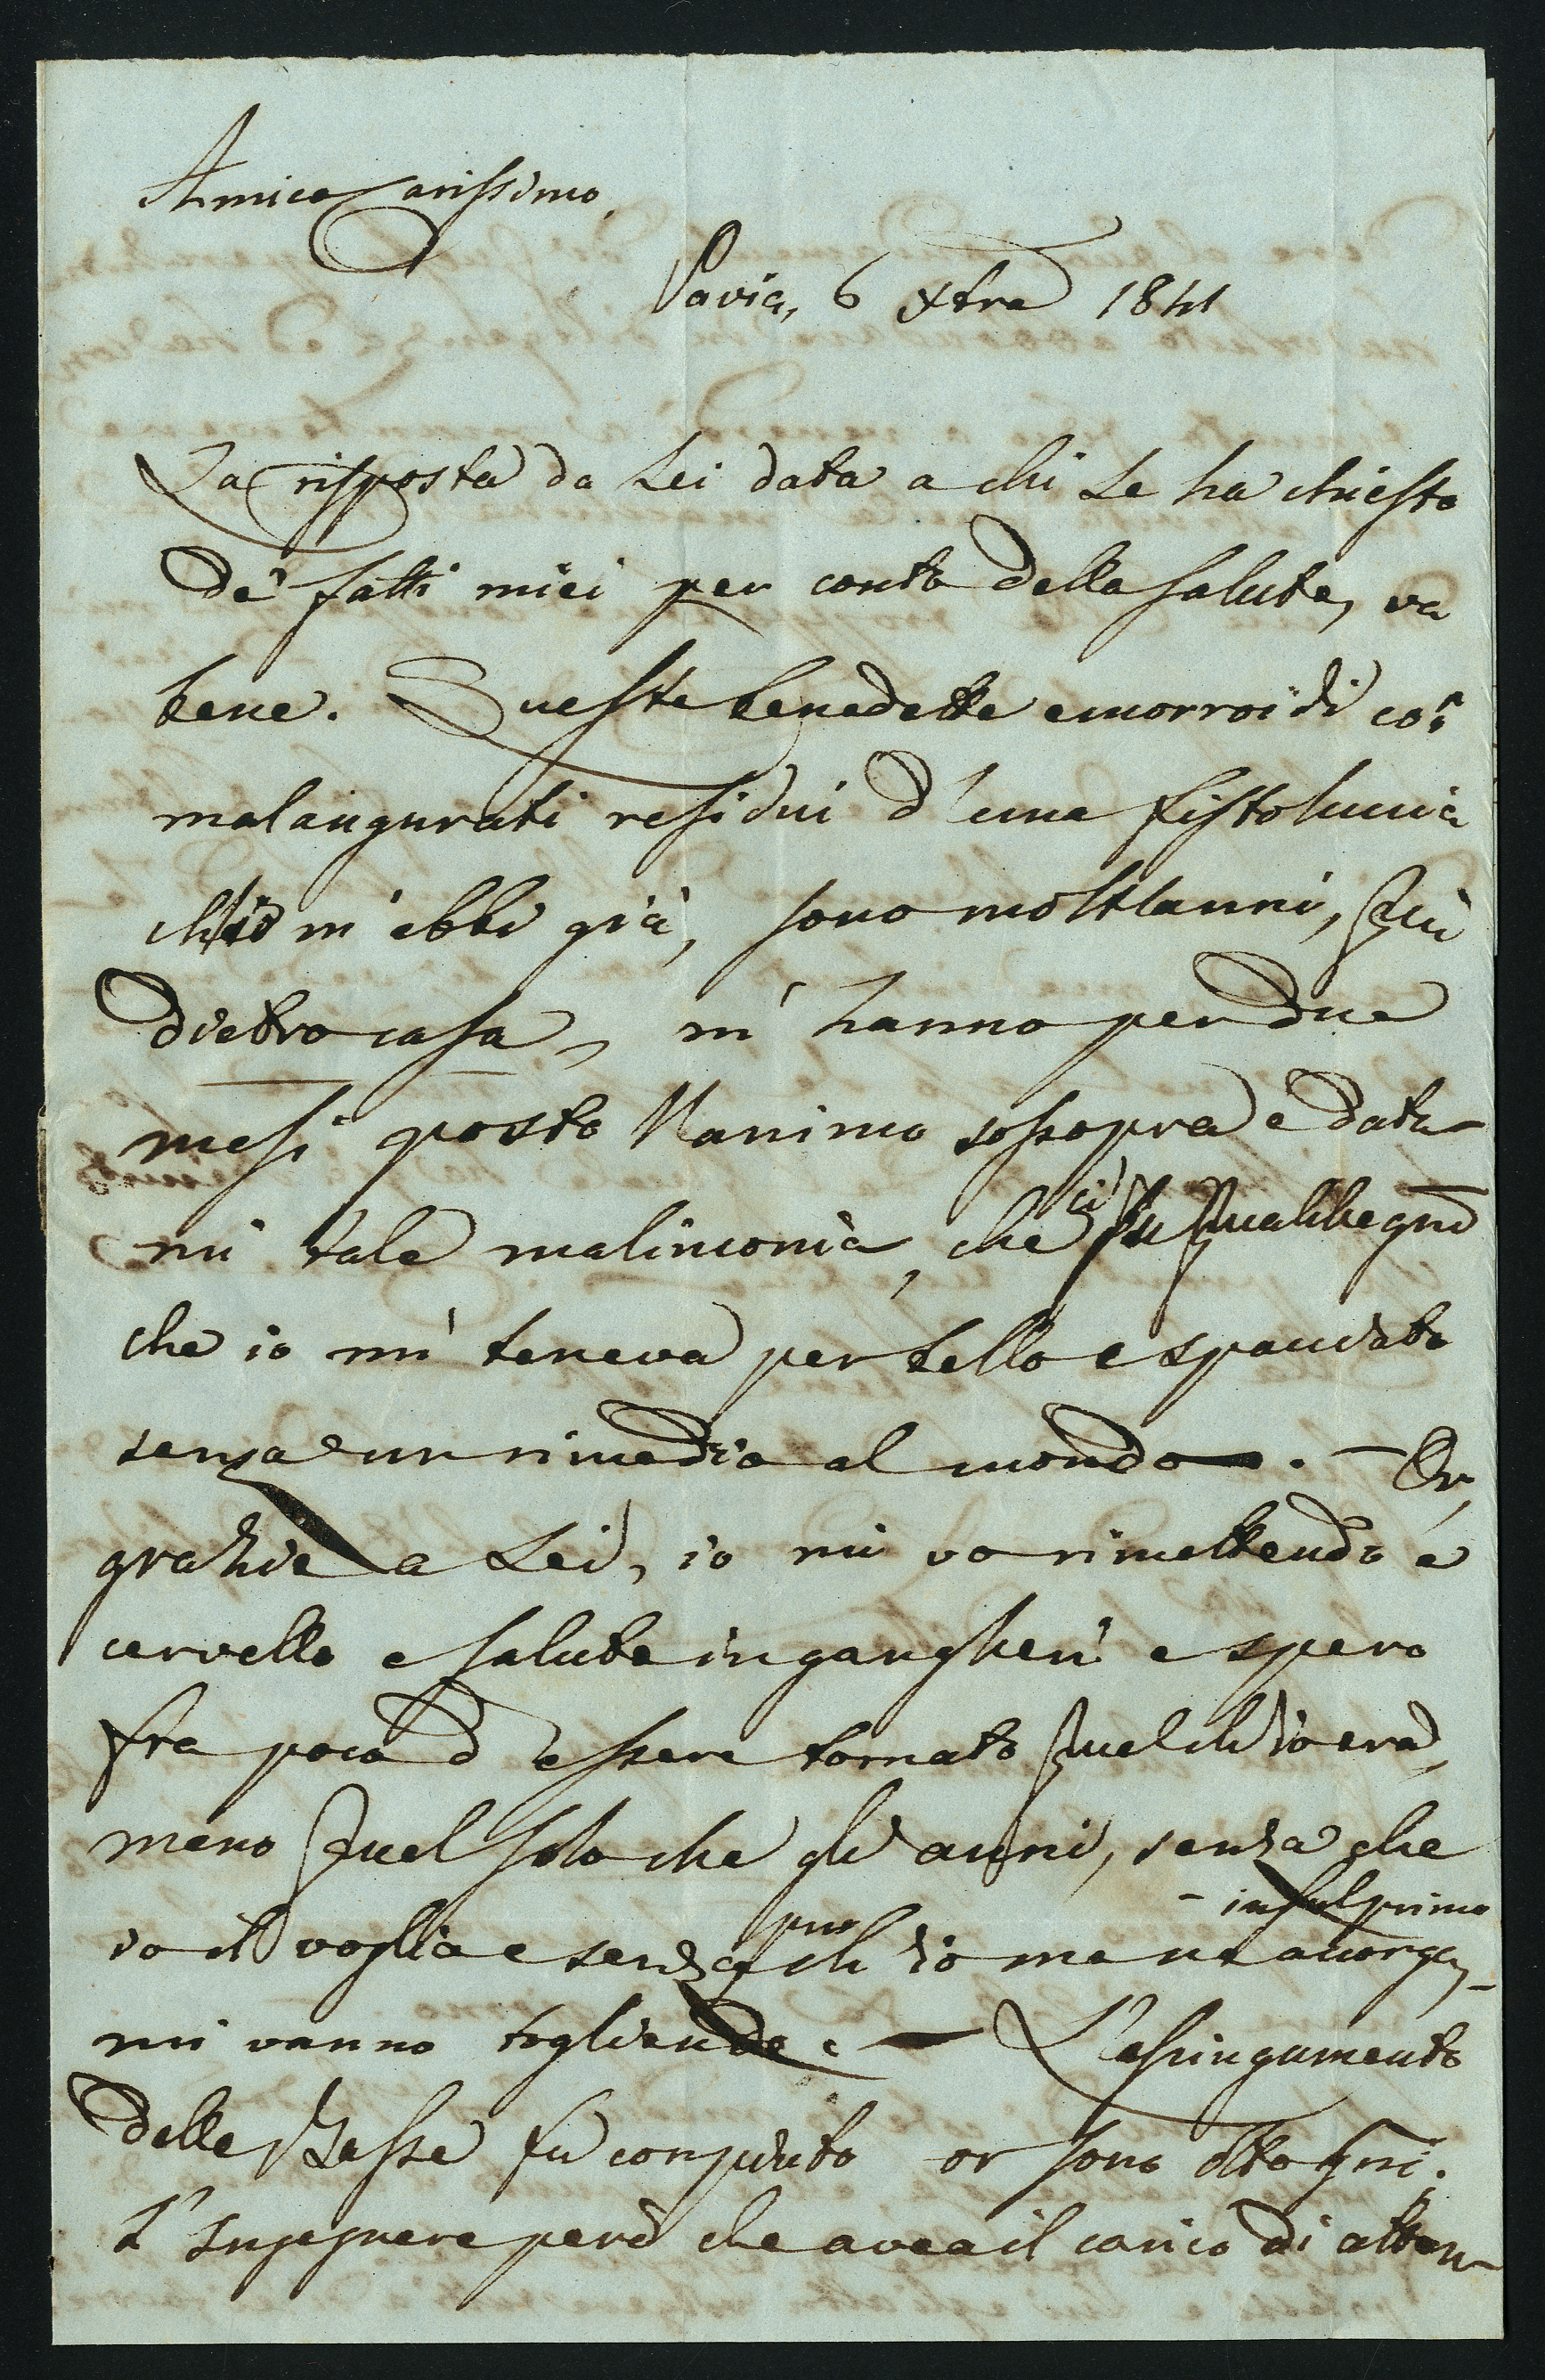 Amico Carissimo,
Pavia, 6 Xbre 1841
La risposta da Lei data a chi Le ha chiesto
de' fatti miei per conto della salute, va
bene. Queste benedette emorroidi coi
malaugurati residui d'una fistoluccia
ch'io m'ebbi già, sono molti anni, qui
dietro casa, m'hanno per due
mesi posto l'animo sossopra e data-
mi tale malinconia, che ci fu qualche gno
che io mi teneva per bello e spacciato
senza un rimedio al mondo. — Or,
grazie a Lei, io mi vo rimettendo e
cervello e salute in gangheri e spero
fra poco d'essere tornato quel ch'io era,
meno quel solo che gli anni, senza che
io il voglia e senza pur ch'io me ne accorga, - in sul primo -
mi vanno togliendo. — L'asciugamento
delle Zesse fu compiuto or sono otto gni.
L'Ingegnere però che avea il carico di atten-